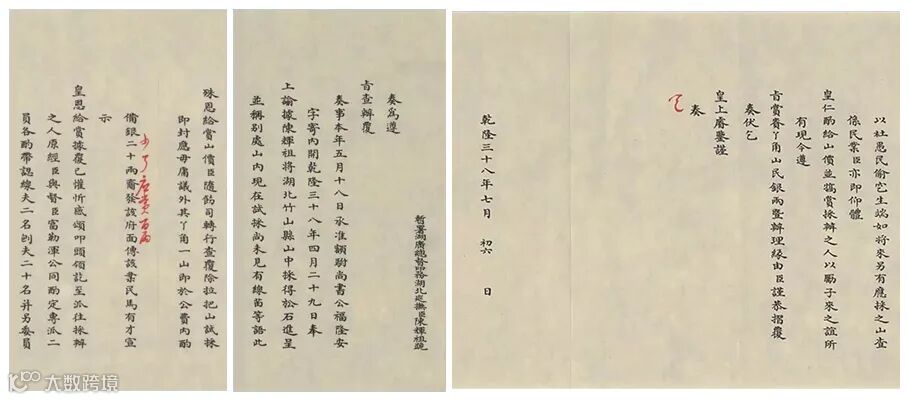 暫署湖廣總督印務湖北巡撫臣陳輝祖跪
奏為遵
旨查辦覆
奏事本年五月十八日承准額駙尚書公福隆安
字寄內開乾隆三十八年四月二十九日奉
上諭據陳輝祖將湖北竹山縣山中採得松石進呈
並稱別處山內現在試採尚未見有線苗等語此
殊恩給賞山價臣隨飭司轉行查覆除拉把山試採
即封應毋庸議外其丫角一山即於公費內酌
備銀二十兩齎發該府面傳該業民馬有才宣
少了應賞百兩
示
皇恩給賞據覆已懽忻感頌叩頭領訖至派往採辦
之人原經臣與督臣富勒渾公同酌定專派二
員各酌帶認線夫二名刨夫二十名并另委員
以杜愚民偷挖生端如將來另有應採之山查
係民業臣亦即仰體
皇仁酌給山價並犒賞採辦之人以勵子來之誼所
有現今遵
旨賞賚丫角山民銀兩暨辦理緣由臣謹恭摺覆
奏伏乞
皇上睿鑒謹
奏
乾隆三十八年七月 初六 日
大数跨境